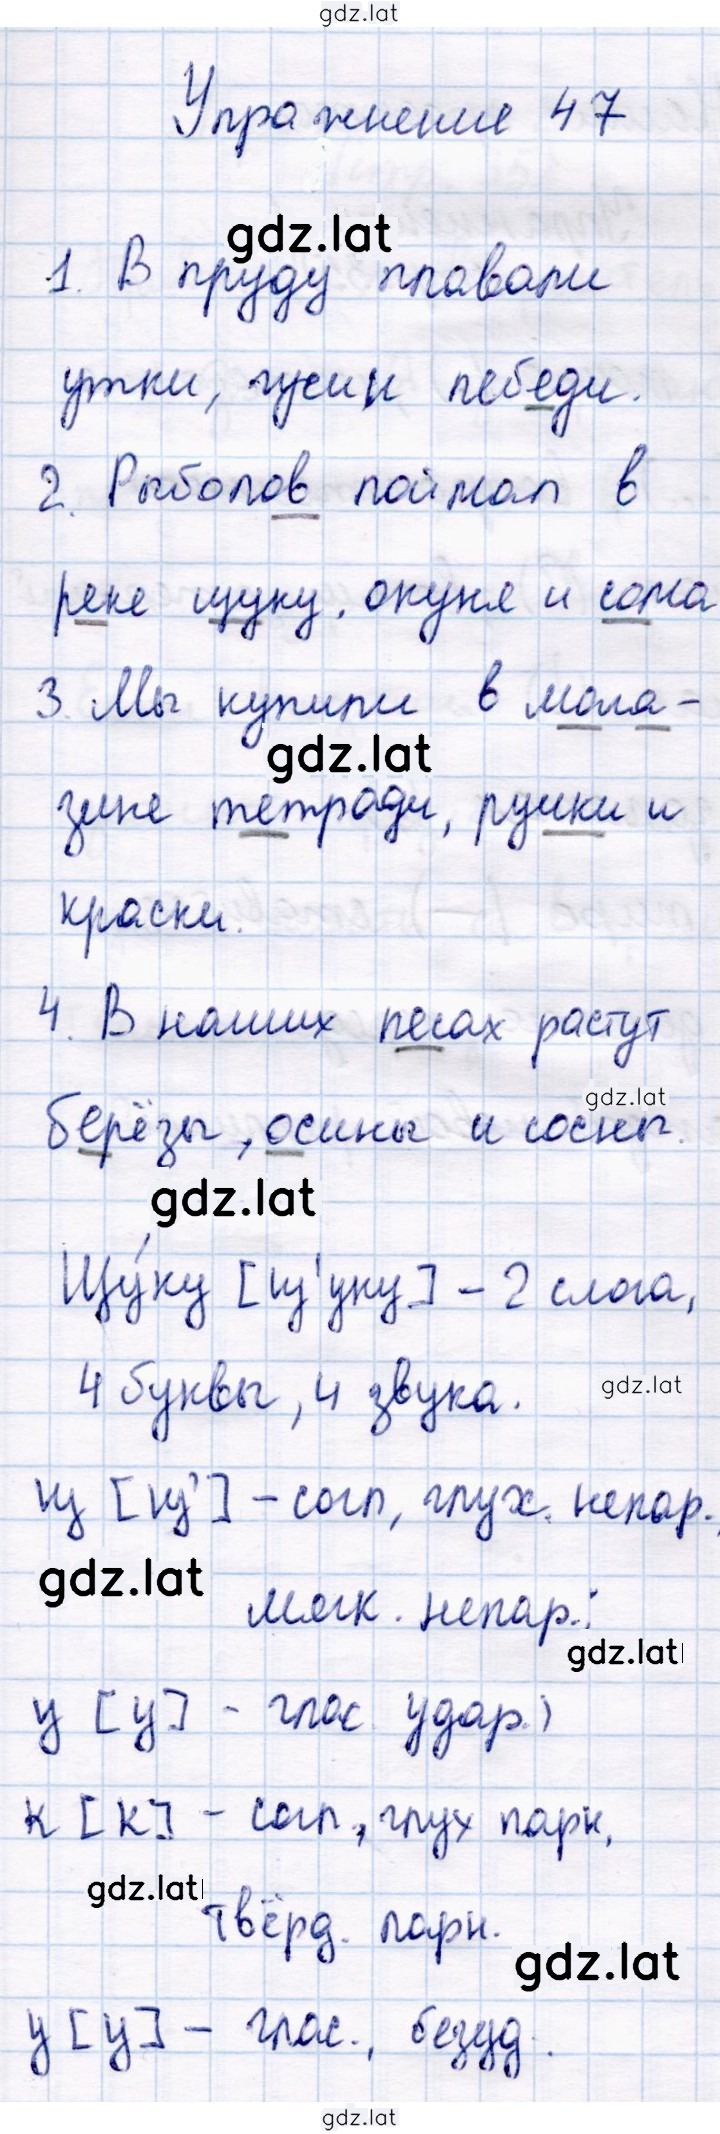 gdz.lat
Упражнение 47
gdz.lat
1. В пруду плавали
утки, гуси и лебеди.
2. Рыболов поймал в
реке щуку, окуня и сома
3. Мы купили в мага-
gdz.lat
зине тетради, ручки и
краски.
4. В наших лесах растут
gdz.lat
берёзы, осины и сосны.
gdz.lat
Щу́ку [щ'уку] – 2 слога,
4 буквы, 4 звука.
gdz.lat
щ [щ'] – согл, глух. непар.,
gdz.lat
мягк. непар.;
gdz.lat
у [у] - глас. удар.;
к [к] – согл., глух парн,
gdz.lat
твёрд. парн.
gdz.lat
у [у] – глас., безуд.
gdz.lat